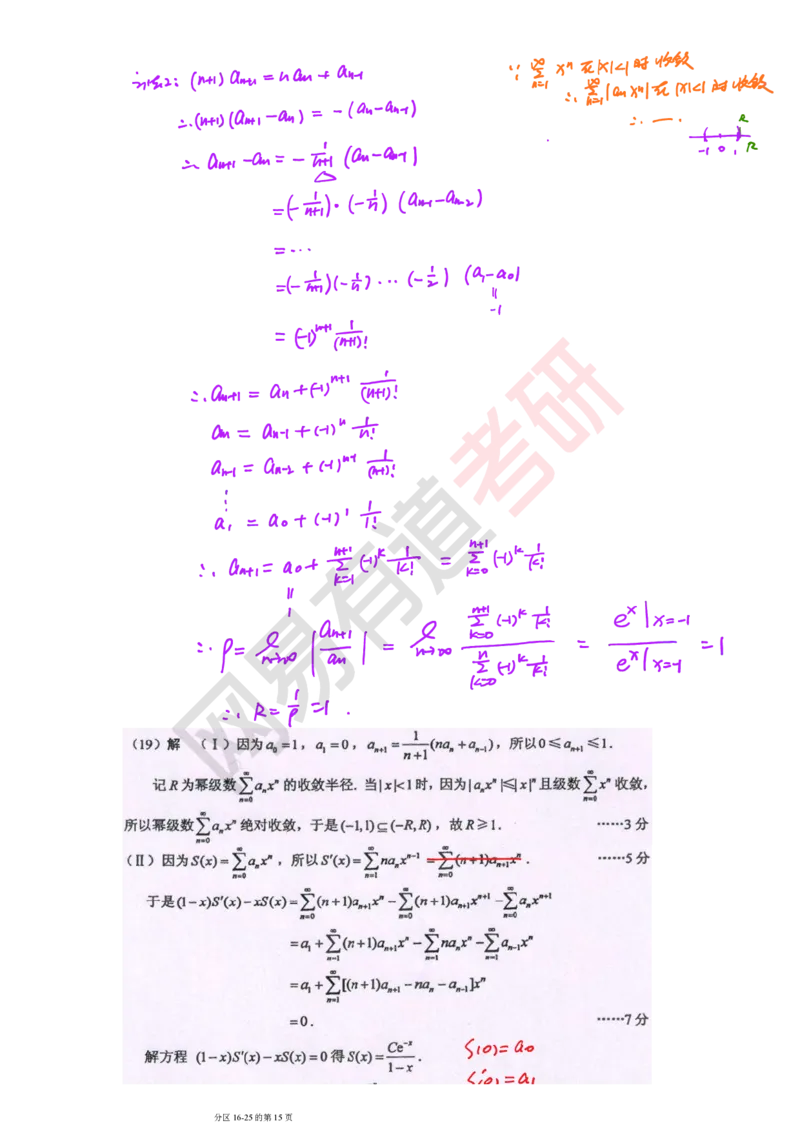 方法2: (n+1) aₙ₊₁ = n aₙ + aₙ₋₁
∵ ∑_{n=1}^{∞} xⁿ 在|x|<1时收敛
∴ ∑_{n=1}^{∞} |aₙxⁿ| 在|x|<1时收敛
∴ 一.
R
-1 0 1 R
∴ (n+1)(aₙ₊₁ - aₙ) = -(aₙ - aₙ₋₁)
∴ aₙ₊₁ - aₙ = - 1/(n+1) (aₙ - aₙ₋₁)
= (- 1/(n+1)) · (- 1/n) (aₙ₋₁ - aₙ₋₂)
= ···
= (- 1/(n+1))(- 1/n) ··· (- 1/2) (a₁ - a₀)
=
-1
= (-1)ⁿ⁺¹ 1/(n+1)!
∴ aₙ₊₁ = aₙ + (-1)ⁿ⁺¹ 1/(n+1)!
aₙ = aₙ₋₁ + (-1)ⁿ 1/n!
aₙ₋₁ = aₙ₋₂ + (-1)ⁿ⁻¹ 1/(n-1)!
⋮
a₁ = a₀ + (-1)¹ 1/1!
∴ aₙ₊₁ = a₀ + ∑_{k=1}^{n+1} (-1)ᵏ 1/k! = ∑_{k=0}^{n+1} (-1)ᵏ 1/k!
=
1
∴ ρ = lim_{n→∞} |aₙ₊₁/aₙ| = lim_{n→∞} (∑_{k=0}^{n+1} (-1)ᵏ 1/k!)/(∑_{k=0}^{n} (-1)ᵏ 1/k!) = (eˣ|x=-1)/(eˣ|x=-1) = 1
∴ R = 1/ρ = 1 .
网易有道考研
(19) 解 (Ⅰ) 因为 a₀=1, a₁=0, aₙ₊₁ = 1/(n+1) (naₙ + aₙ₋₁), 所以 0≤aₙ₊₁≤1.
记 R 为幂级数 ∑_{n=0}^{∞} aₙxⁿ 的收敛半径. 当|x|<1时, 因为|aₙxⁿ|≤|x|ⁿ 且级数 ∑_{n=0}^{∞} xⁿ 收敛,
所以幂级数 ∑_{n=0}^{∞} aₙxⁿ 绝对收敛, 于是 (-1,1)⊆(-R,R), 故 R≥1. ······3分
(Ⅱ) 因为 S(x)=∑_{n=0}^{∞} aₙxⁿ, 所以 S′(x)=∑_{n=1}^{∞} naₙxⁿ⁻¹ =∑_{n=0}^{∞} (n+1)aₙ₊₁xⁿ. ······5分
于是 (1-x)S′(x)-xS(x)=∑_{n=0}^{∞} (n+1)aₙ₊₁xⁿ -∑_{n=0}^{∞} (n+1)aₙ₊₁xⁿ⁺¹ -∑_{n=0}^{∞} aₙxⁿ⁺¹
=a₁+∑_{n=1}^{∞} (n+1)aₙ₊₁xⁿ -∑_{n=1}^{∞} naₙxⁿ -∑_{n=1}^{∞} aₙ₋₁xⁿ
=a₁+∑_{n=1}^{∞} [(n+1)aₙ₊₁-naₙ-aₙ₋₁]xⁿ
=0. ······7分
解方程 (1-x)S′(x)-xS(x)=0 得 S(x)= Ce⁻ˣ/(1-x).
S(0)=a₀
S′(0)=a₁
分区 16-25 的第 15 页